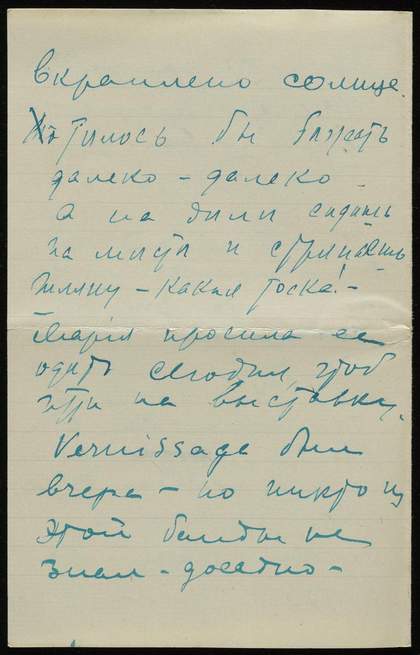 вкраплено солнце.
Хотилось бы бежать
далеко – далеко
а на дили сидишь
на мисти и
шляпу – какая тоска! –
Мария просила ее
одить сегодня, чтоб
итти на выставку.
Vernissage был
вчера – но никто из
этой банды не
знал – досадно –